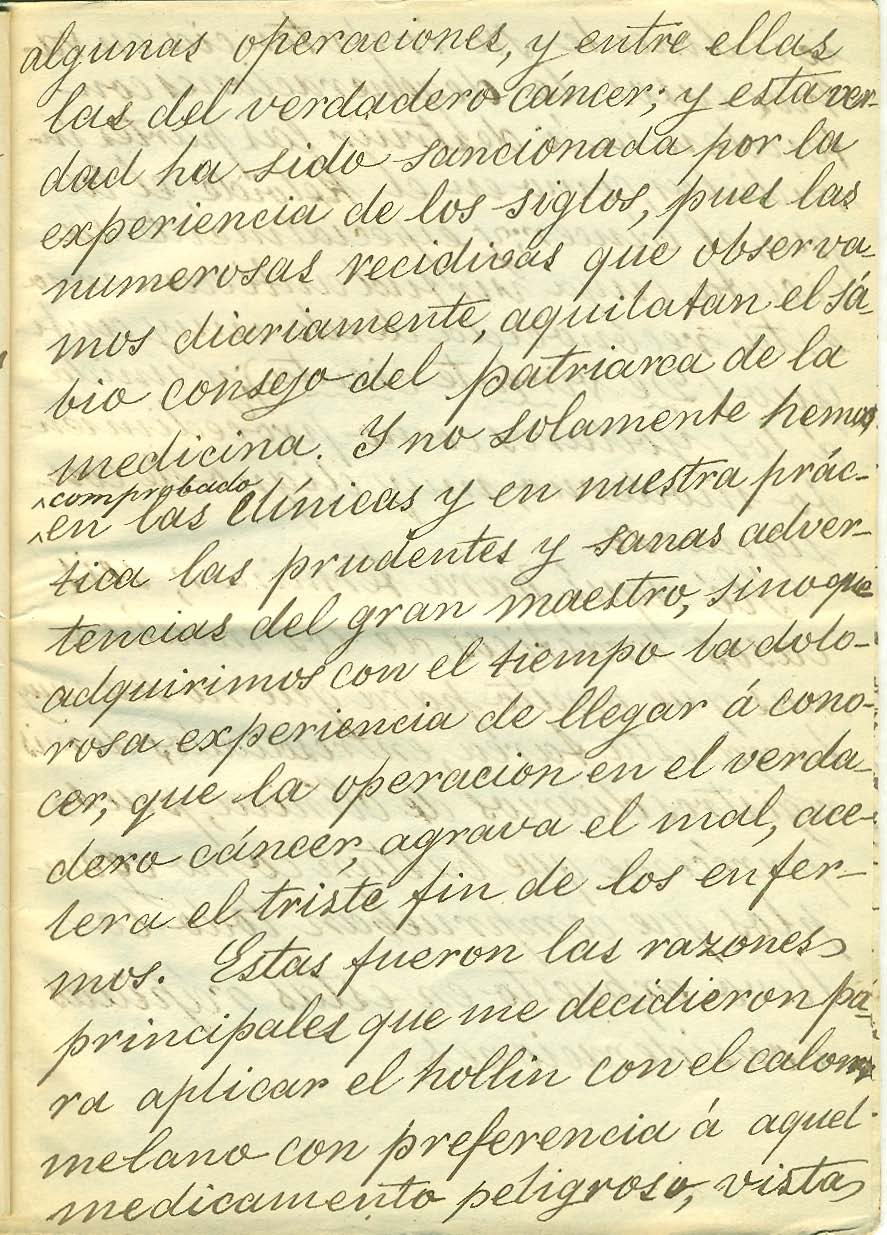 algunas operaciones, y entre ellas
las del verdadero cáncer; y esta ver-
dad ha sido sancionada por la
experiencia de los siglos, pues las
numerosas recidivas que observa-
mos diariamente, aquilatan el sá-
bio consejo del patriarca de la
medicina. Y no solamente hemos
comprobado
en las clínicas y en nuestra prác-
tica las prudentes y sanas adver-
tencias del gran maestro, sino que
adquirimos con el tiempo la dolo-
rosa experiencia de llegar á cono-
cer, que la operacion en el verda-
dero cáncer, agrava el mal, ace-
lera el triste fin de los enfer-
mos. Estas fueron las razones
principales que me decidieron pa-
ra aplicar el hollin con el calom
melano con preferencia á aquel
medicamento peligroso, vista